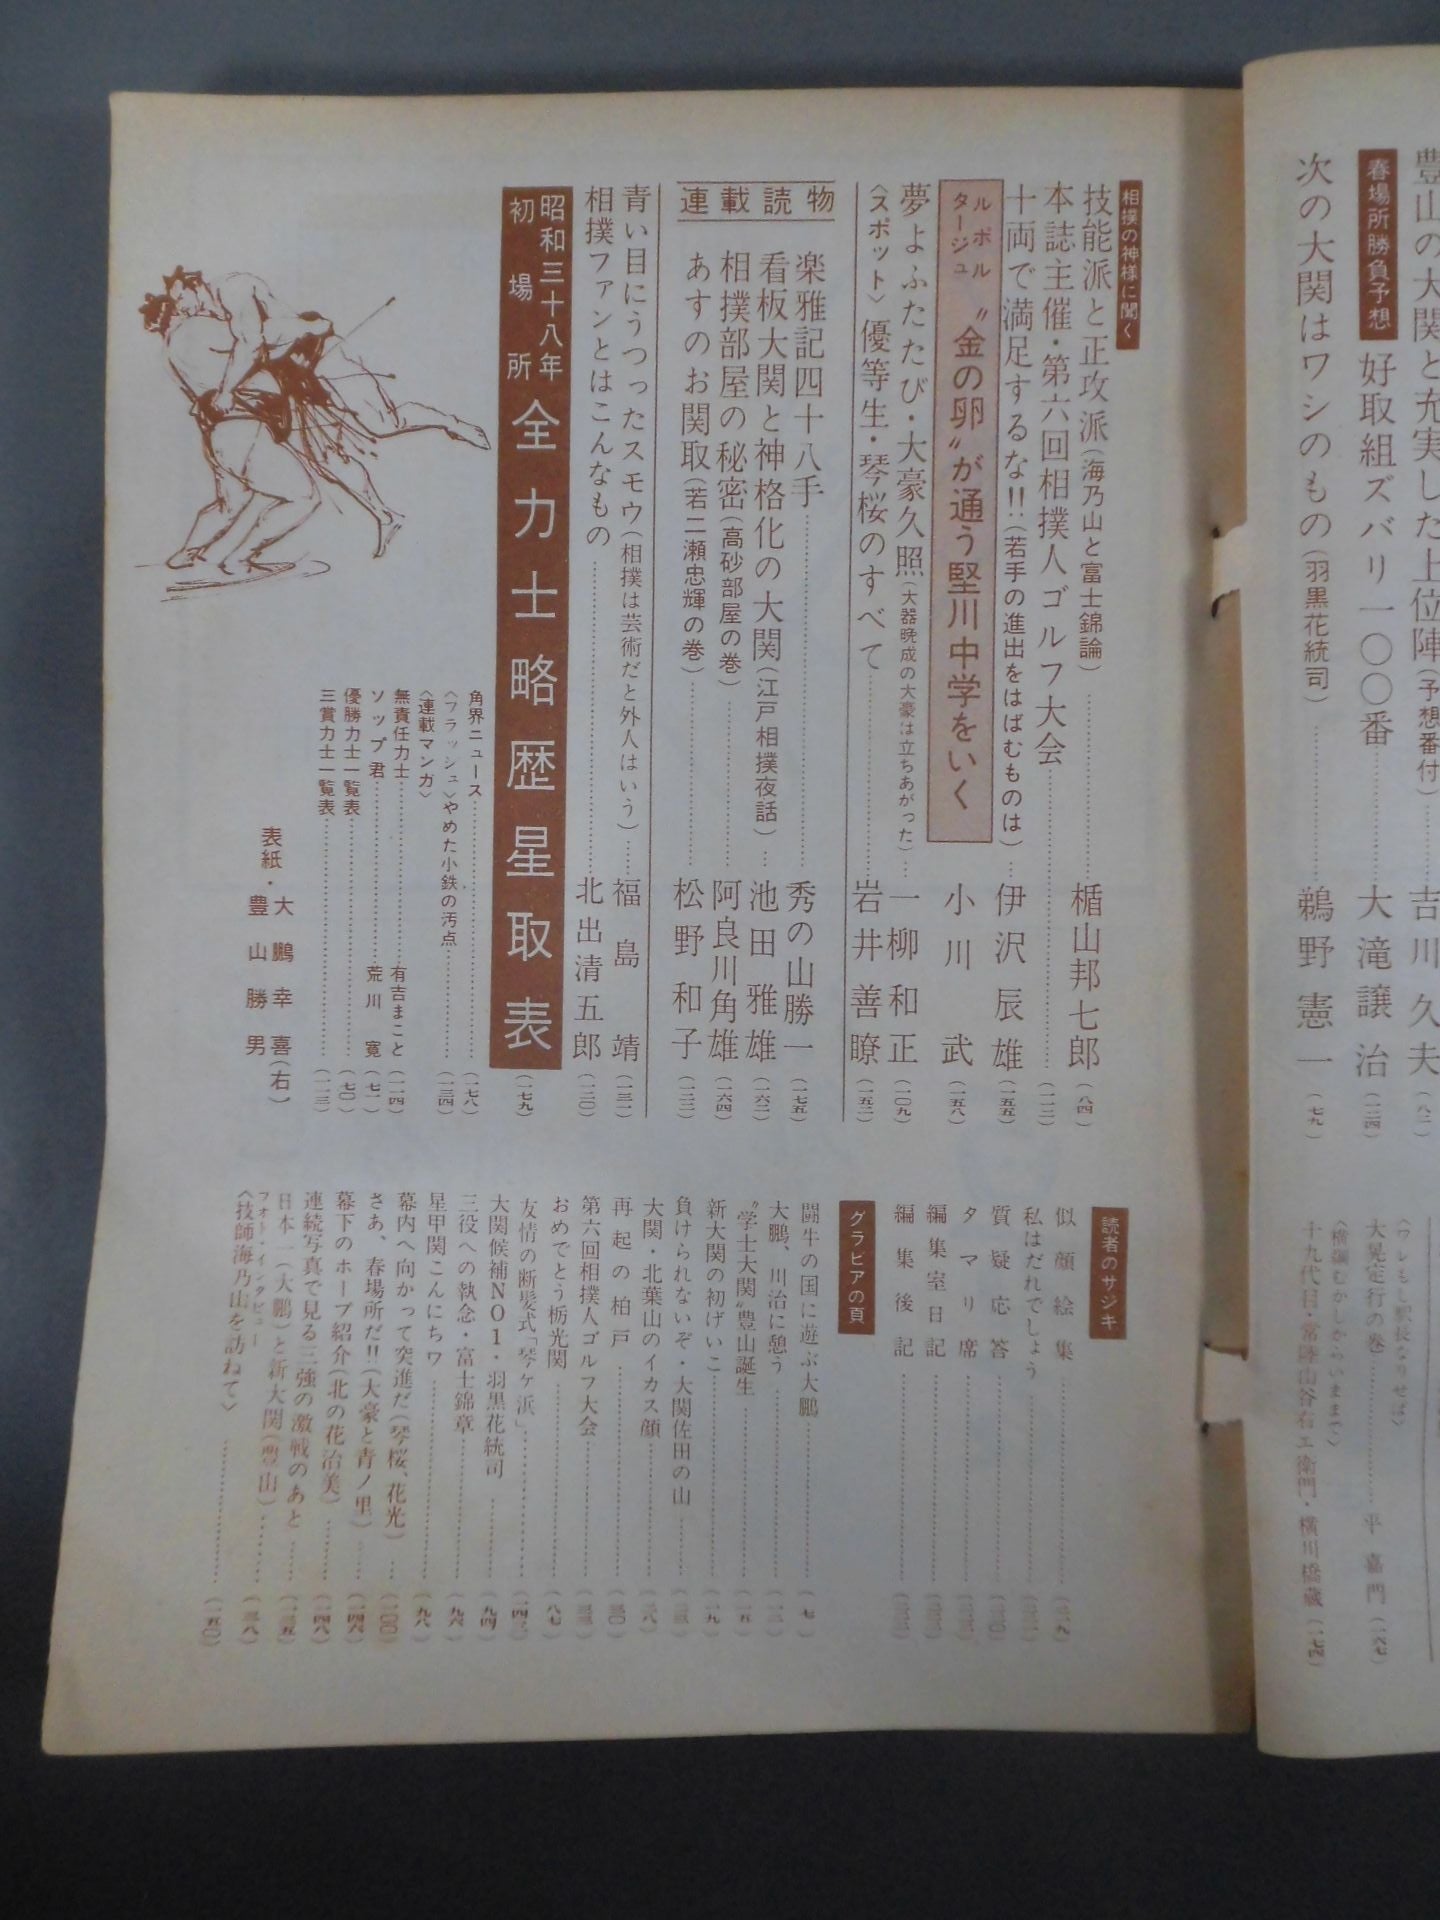 豊山の大関と充実した上位陣(予想番付)……吉川久夫(八二)
春場所勝負予想
好取組ズバリ一〇〇番……大滝譲治(一二四)
次の大関はワシのもの(羽黒花統司)……鵜野憲一(七九)
大晃定行の巻……平嘉門(一六七)
〈横綱むかしからいままで〉
十九代目・常陸山谷右エ衛門・横川橋蔵(一七四)
相撲の神様に聞く
技能派と正攻派(海乃山と富士錦論)……楯山邦七郎(八四)
本誌主催・第六回相撲人ゴルフ大会……(一一二)
十両で満足するな!!(若手の進出をはばむものは)…伊沢辰雄(一五五)
ルポルタージュ
〝金の卵〟が通う堅川中学をいく
小川武(一五八)
夢よふたたび・大豪久照(大器晩成の大豪は立ちあがった)…一柳和正(一〇九)
〈スポット〉優等生・琴桜のすべて……岩井善暸(一五二)
連載読物
楽雅記四十八手……秀の山勝一(一七五)
看板大関と神格化の大関(江戸相撲夜話)…池田雅雄(一六二)
相撲部屋の秘密(高砂部屋の巻)……阿良川角雄(一六四)
あすのお関取(若二瀬忠輝の巻)……松野和子(一二二)
青い目にうつったスモウ(相撲は芸術だと外人はいう)……福島靖(一三一)
相撲ファンとはこんなもの……北出清五郎(一二〇)
昭和三十八年
初場所
全力士略歴星取表(一七九)
角界ニュース……(一七八)
〈フラッシュ〉やめた小鉄の汚点……(一三四)
〈連載マンガ〉
無責任力士……有吉まこと(一一四)
ソップ君……荒川寛(七一)
優勝力士一覧表……(七〇)
三賞力士一覧表……(一一三)
表紙・大鵬幸喜(右)
豊山勝男
読者のサジキ
似顔絵集
私はだれでしょう
質疑応答
タマリ席
編集室日記
編集後記
グラビアの頁
闘牛の国に遊ぶ大鵬……(七)
大鵬、川治に憩う
〝学士大関〟豊山誕生……(一五)
新大関の初げいこ……(一九)
負けられないぞ・大関佐田の山
大関・北葉山のイカス顔
再起の柏戸
第六回相撲人ゴルフ大会
おめでとう栃光関……(八七)
友情の断髪式「琴ヶ浜」
大関候補NO1・羽黒花統司……(九四)
三役への執念・富士錦章……(九六)
星甲関こんにちワ……(九八)
幕内へ向かって突進だ(琴桜、花光)…(一〇〇)
さあ、春場所だ!!(大豪と青ノ里)……(一四六)
幕下のホープ紹介(北の花治美)……(一四八)
連続写真で見る三強の激戦のあと
日本一(大鵬)と新大関(豊山)
フォト・インタビュー
〈技師海乃山を訪ねて〉……(一五〇)